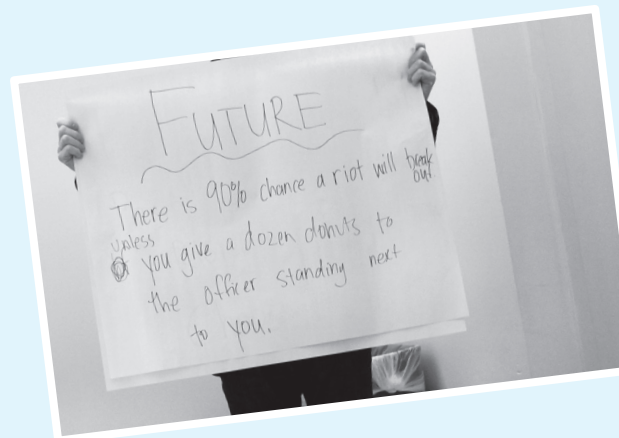 FUTURE
There is 90% chance a riot will break out
unless
you give a dozen donuts to
the officer standing next
to you.